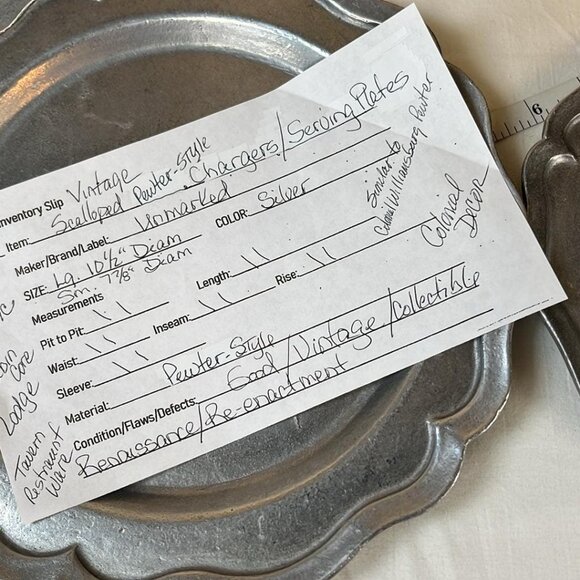 Vintage
Inventory Slip Scalloped Pewter-Style
Item: Chargers/Serving Plates
Maker/Brand/Label: Unmarked COLOR: Silver
SIZE: Lg. 10 1/2" Diam
Sm. 7 7/8" Diam
Measurements
Pit to Pit: \ \ Length: \ \ Rise: \ \
Waist: \ \ Inseam: \ \
Sleeve: \ \
Material: Pewter-Style
Condition/Flaws/Defects: Good/Vintage/Collectible
Renaissance/Re-enactment
Similar to
Williamsburg Pewter
Colonial
Decor
Core
Lodge
Tavern
Ware
6